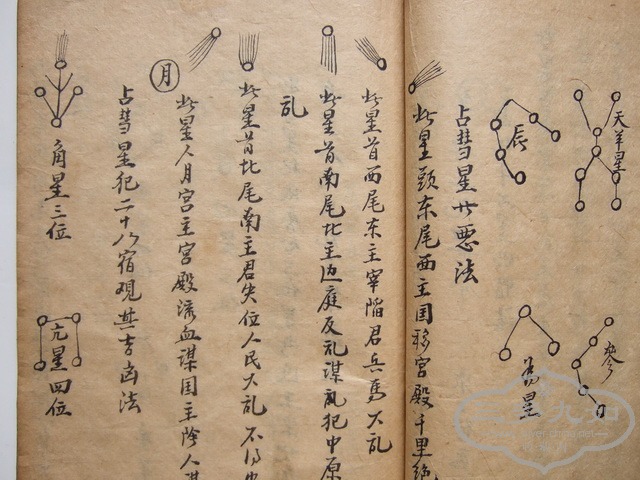 天羊星
辰
参
占彗星廿悪法
此星頭东尾西主国移宫殿千里絶
此星首西尾东主宰陷君兵馬大乱
此星首南尾北主边庭反乱谋乱犯中原
乱
此星首北尾南主君失位人民大乱不得安
月
此星人月宫主宫殿流血谋国主陰人
占彗星犯二十八宿观其吉凶法
角星三位
亢星四位
三星九如